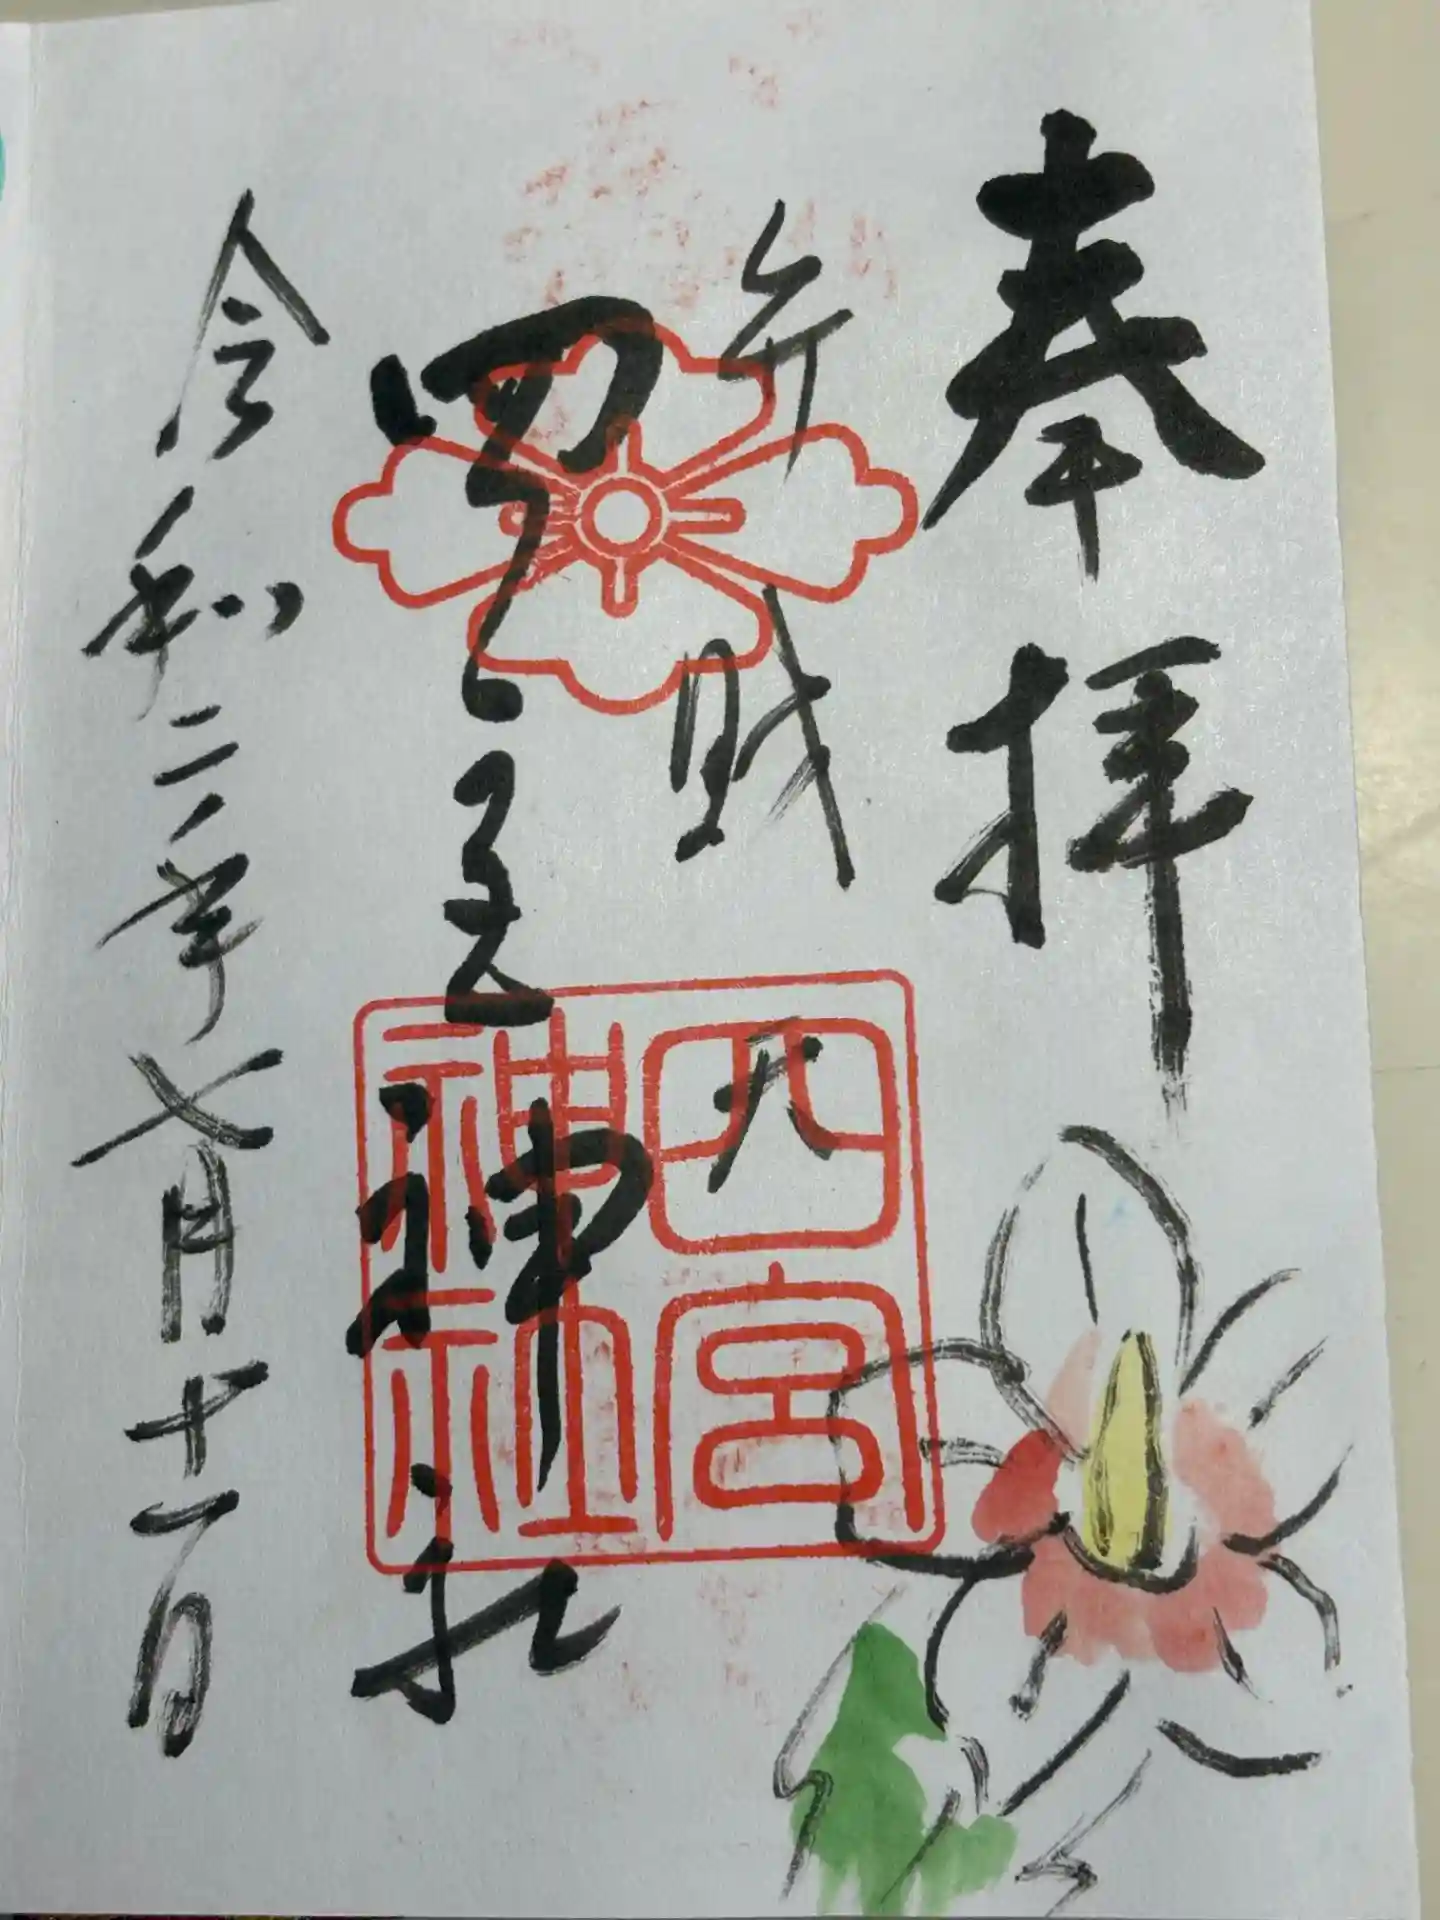 奉拝
弁財天
四宮神社
四宮神社
令和二年七月十一日